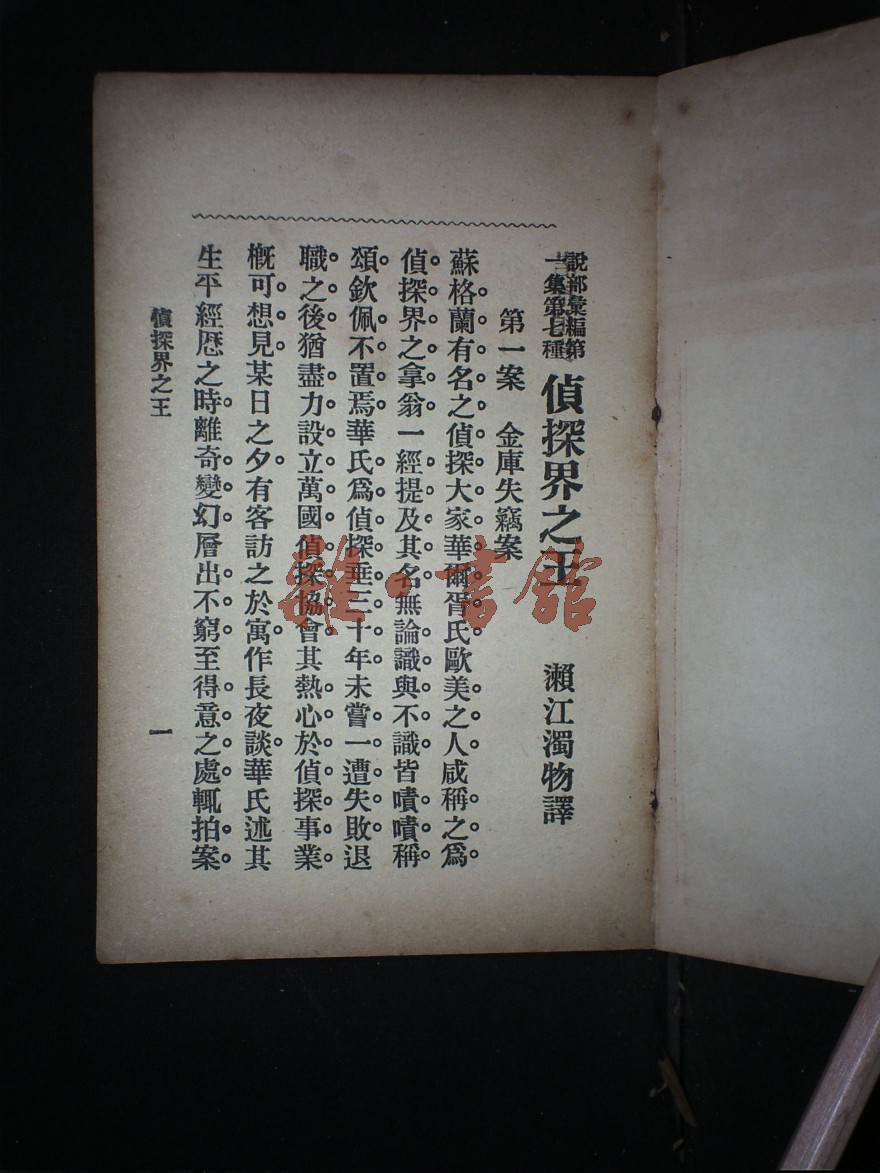 說部彙編第
一集第七種
偵探界之王
瀨江濁物譯
第一案 金庫失竊案
蘇格蘭有名之偵探大家華爾胥氏歐美之人咸稱之爲
偵探界之拿翁一經提及其名無論識與不識皆嘖嘖稱
頌欽佩不置焉華氏爲偵探垂三十年未嘗一遭失敗退
職之後猶盡力設立萬國偵探協會其熱心於偵探事業
概可想見某日之夕有客訪之於寓作長夜談華氏述其
生平經歷之時離奇變幻層出不窮至得意之處輒拍案
偵探界之王
一
雜·書館